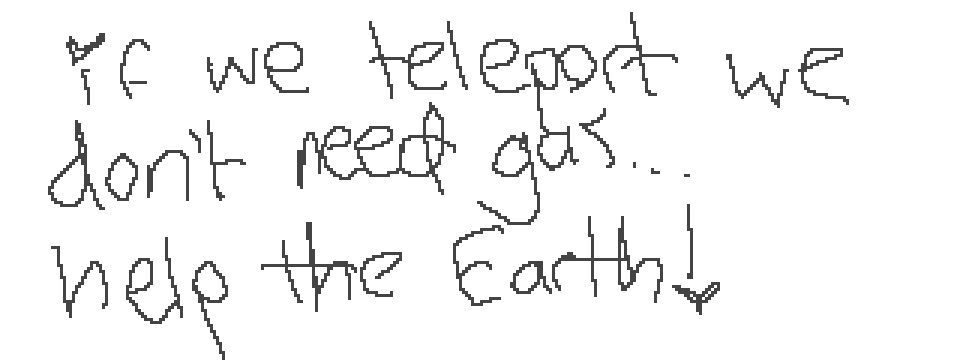 if we teleport we
don't need gas...
help the Earth!